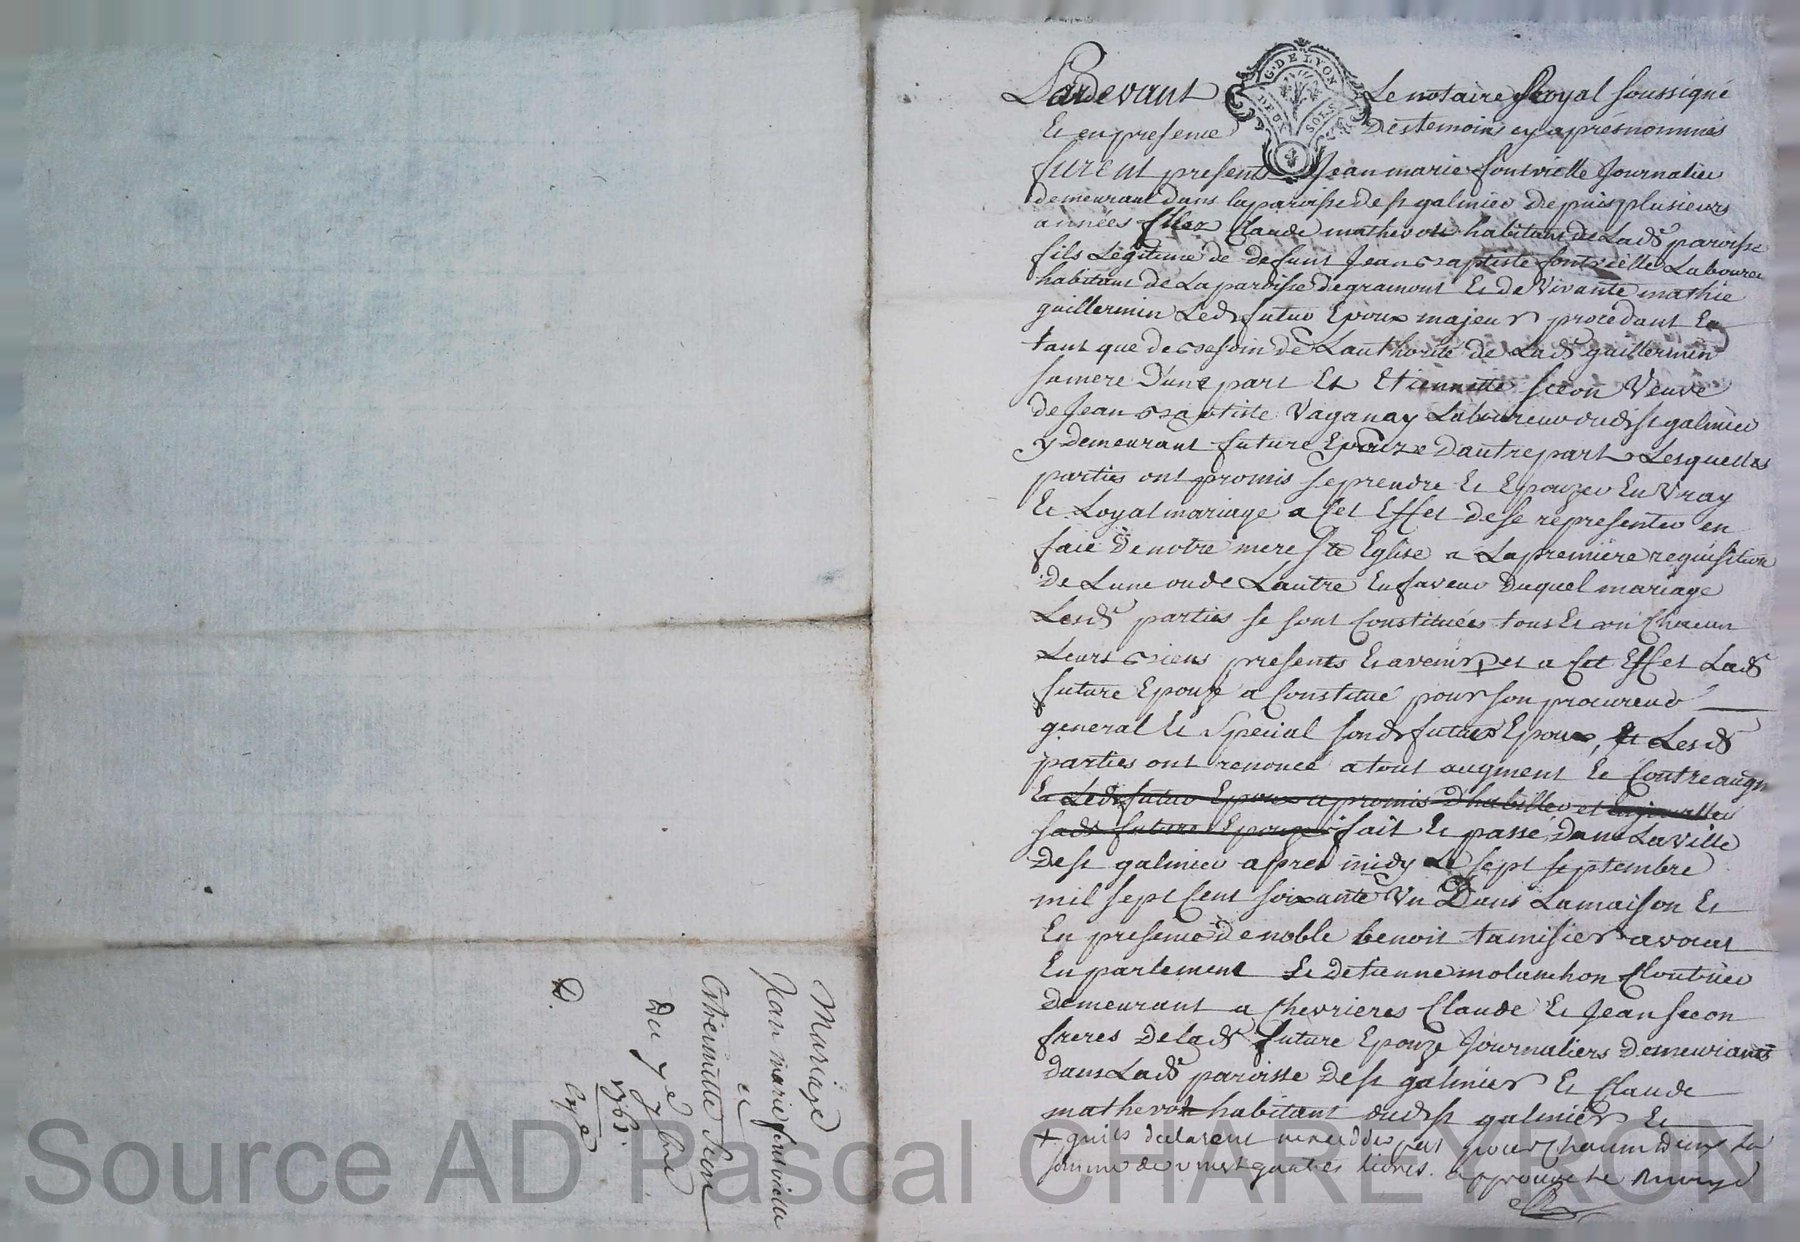 Pardevant Le notaire Royal soussigné
G. DE LYON
DEUX SOLS
Et en presence Des temoins cy apres nommés
furent presents Jean marie fontvielle Journalier
demeurant dans la paroisse de st galmier depuis plusieurs
années chez Claude mathevon habitant de Lad.e paroisse
fils Légitime de defunt Jean Baptiste fontvielle Laboureur
habitant de La paroisse de gramont Et de Vivante mathie
guillermin Led.t futur Epoux majeur procedant En
tant que de besoin de Lauthorité de Lad.e guillermin
sa mere D'une part Et Etiennette sceon Veuve
de Jean Baptiste Vaganay Laboureur dud.t st galmier
y demeurant future Epouze Dautre part Lesquelles
parties ont promis se prendre Et Epouzer En Vray
Et Loyal mariage a cet Effet de se representer en
face De notre mere ste Eglise a La premiere requisition
De Lune ou de Lautre En faveur Duquel mariage
Lesd.es parties se sont Constituées tous Et un Chacun
Leurs Biens presents Et avenir Et a cet Effet Lad.e
future Epouze a Constitué pour son procureur
general Et Special sond.t futur Epoux, Et Lesd.es
parties ont renoncé a tout augment Et Contreaugm
Et Led.t futur Epoux a promis d'habiller et Enjoualler
sad.e future Epouze fait Et passé, Dans La Ville
De st galmier apres midy Le sept septembre
mil sept Cent soixante Un Dans La maison Et
En presence De noble benoit tamisier avocat
En parlement Et detienne molanchon Cloutrier
Demeurant a Chevrieres Claude Et Jean sceon
freres De lad.e future Epouze Journaliers Demeurants
dans Lad.e paroisse De st galmier Et Claude
mathevon habitant dud.t st galmier Et
+ quils declarent pour chacun Deux la
somme de vingt quatre livres. approuve Le Renvoye
Mariage
Jean marie fontvielle
et
Estiennette Sceon
Du 7e 7bre
1761.
D.
Source AD Pascal CHAREYRON